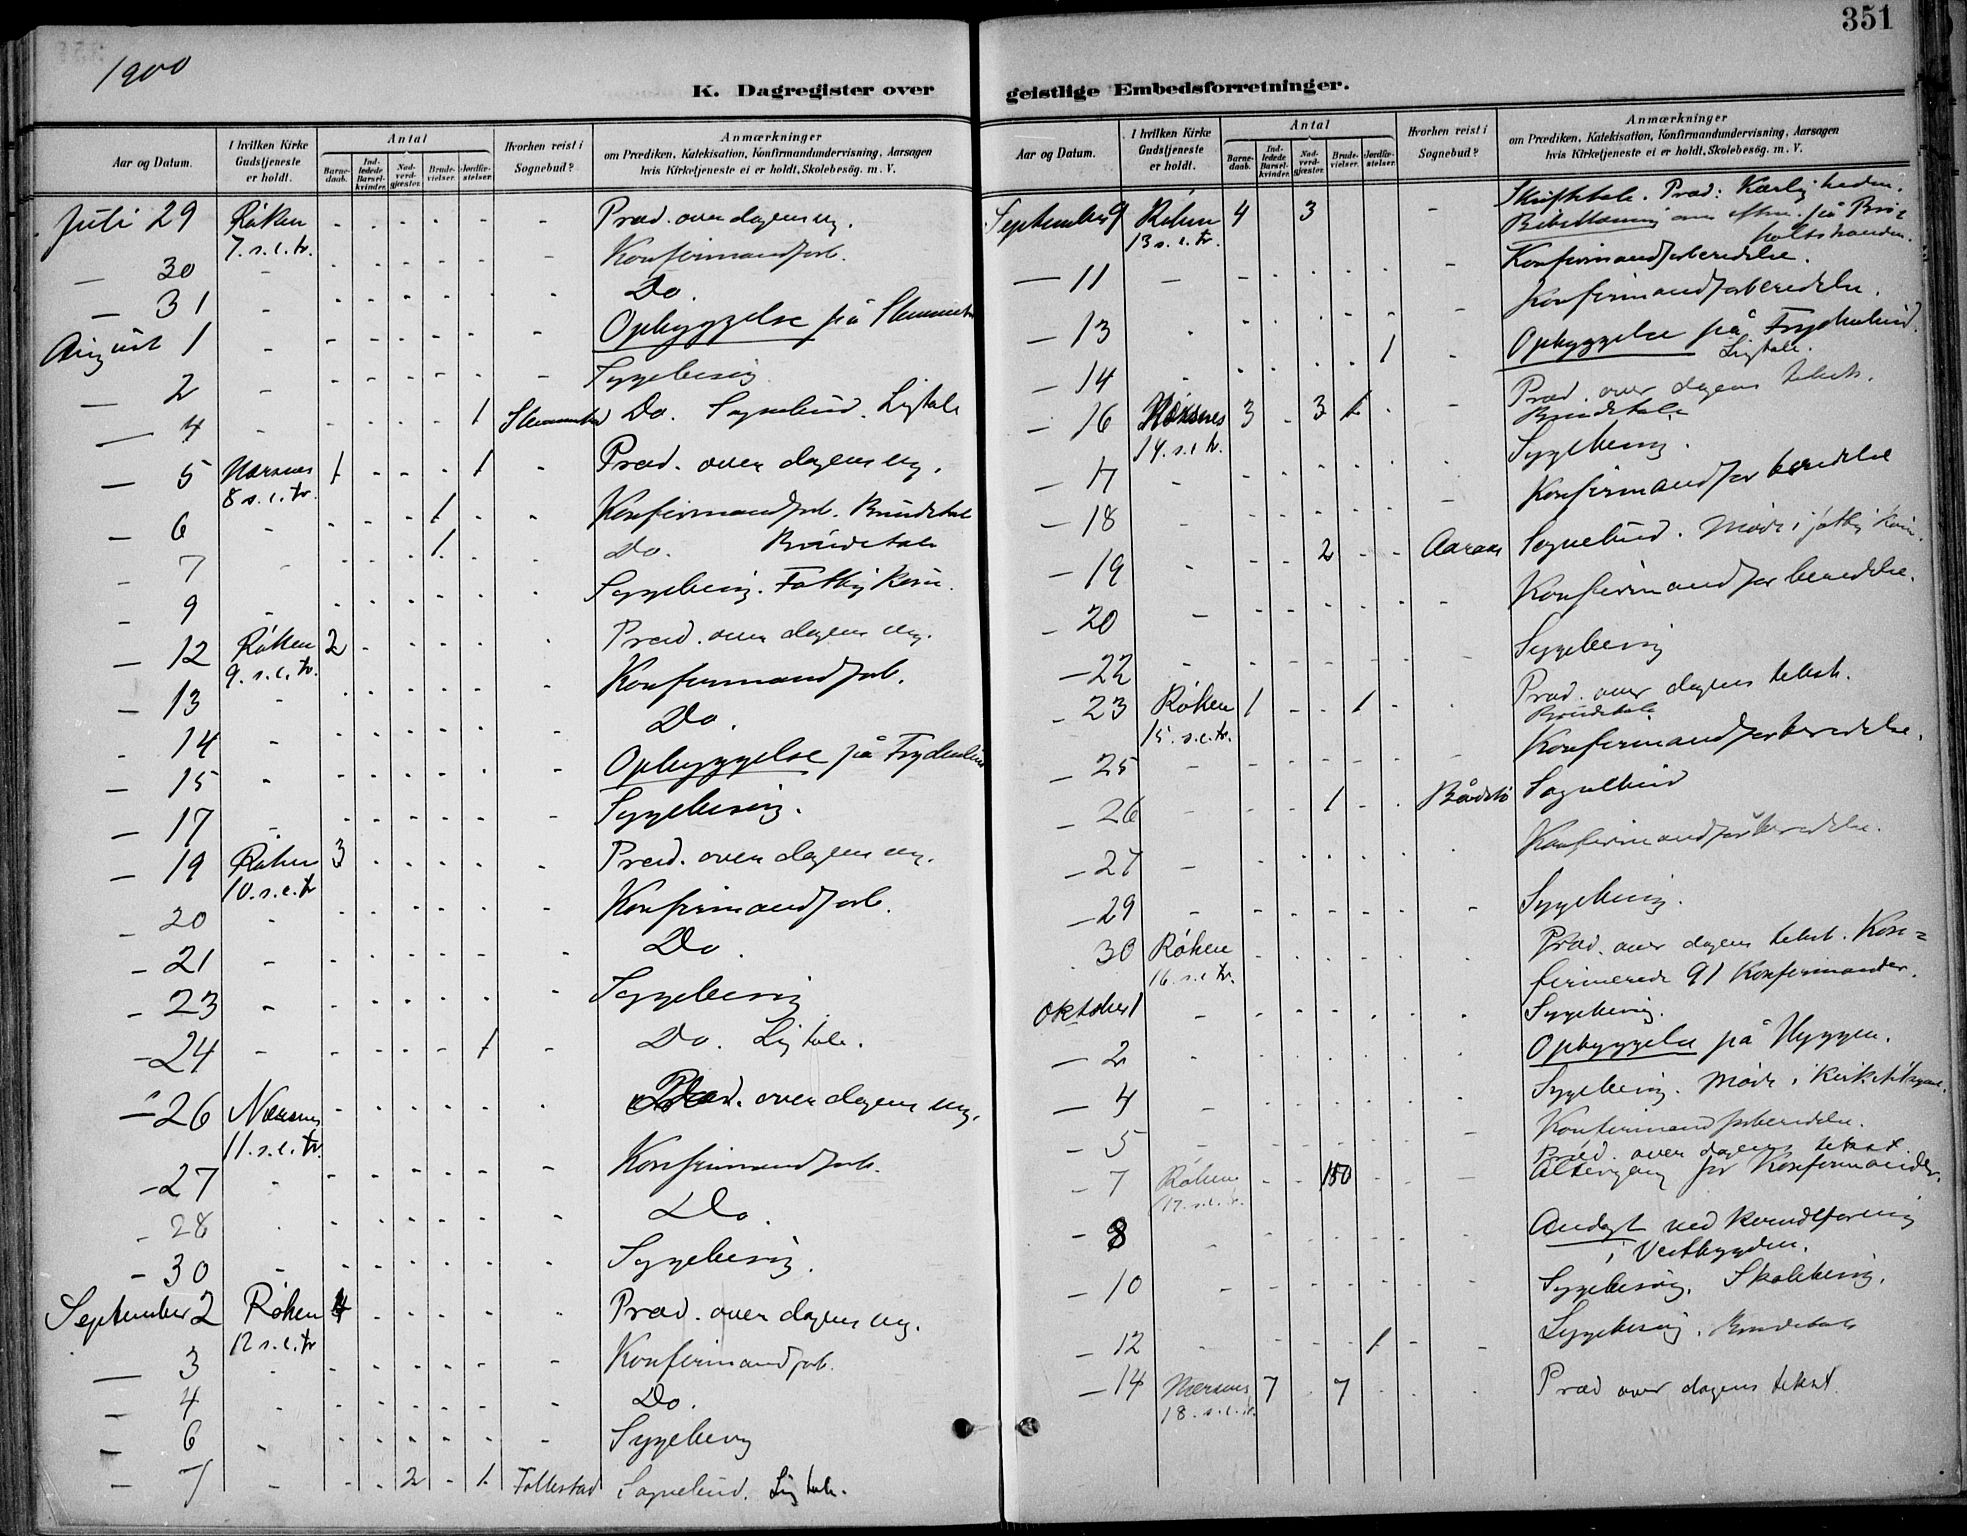 351
1900
K. Dagregister over geistlige Embedsforretninger.
Aar og Datum. I hvilken Kirke Gudstjeneste er holdt. Antal Barnedaab. Indledede Barselkvinder. Nadverdgjæster. Brudevielser. Jordfæstelser. Hvorhen reist i Sognebud? Anmærkninger om Prædiken, Katekisation, Konfirmandundervisning, Aarsagen hvis Kirketjeneste ei er holdt, Skolebesøg. m. V.
Juli 29 Røken - - - - - - Præd. over dagens ev.
7. s. e. tr.
— 30 - - - - - - - Konfirmandforb.
— 31 - - - - - - - Do.
August 1 - - - - - - - Opbyggelse på Slemmestad
— 2 - - - - - - - Sygebesøg
— 4 - - - - - 1 Slemmestad Do. Sognebud. Ligtale
— 5 Nærsnes 1 - - - 1 - Præd. over dagens ev.
8 s. e. tr.
— 6 - - - - 1 - - Konfirmandforb. Brudetale
— 7 - - - - 1. - - Do. Brudetale
— 9 - - - - - - - Sygebesøg. Fattigkom.
— 12 Røken 2 - - - - - Præd. over dagens ev.
9. s. e. tr.
— 13 - - - - - - - Konfirmandforb.
— 14 - - - - - - - Do.
— 15 - - - - - - - Opbyggelse på Frydenlund
— 17 - - - - - - - Sygebesøg.
— 19 Røken 3 - - - - - Præd. over dagens ev.
10. s. e. tr
— 20 - - - - - - - Konfirmandforb.
— 21 - - - - - - - Do.
— 23 - - - - - - - Sygebesøg
— 24 - - - - - 1 - Do. Ligtale.
— 26 Nærsnes - - - - - - Præd. over dagens ev.
11. s. e. tr.
— 27 - - - - - - - Konfirmandforb.
— 28 - - - - - - - Do.
— 30 - - - - - - - Sygebesøg.
September 2 Røken 4 - - - - - Præd. over dagens ev.
12 s. e. tr
— 3 - - - - - - - Konfirmandforb.
— 4 - - - - - - - Do.
— 6 - - - - - - - Sygebesøg
— 7 - - - 2 - 1. Follestad Sognebud. Ligtale.
Aar og Datum. I hvilken Kirke Gudstjeneste er holdt. Antal Barnedaab. Indledede Barselkvinder. Nadverdgjæster. Brudevielser. Jordfæstelser. Hvorhen reist i Sognebud? Anmærkninger om Prædiken, Katekisation, Konfirmandundervisning, Aarsagen hvis Kirketjeneste ei er holdt, Skolebesøg. m. V.
Skriftetale. Præd: Kærligheden.
September 9 Røken 4 3 - Bibellæsning om eftm. på
13 s. e. tr.
— 11 - - - - - - - Konfirmandforberedelse.
— 13 - - - - - - - Konfirmandforberedelse.
— 14 - - - - - 1 - Opbyggelse på Frydenlund. Ligtale.
— 16 Nærsnes 3 - 3 1 - - Præd. over dagens tekst.
14. s. e. tr. Brudetale
— 17 - - - - - - - Sygebesøg.
— 18 - - - - - - - Konfirmandforberedelse
— 19 - - - 2 - - Aaraas Sognebud. Møde i fattigkom.
— 20 - - - - - - - Konfirmandforberedelse.
— 22 - - - - - - - Sygebesøg
— 23 Røken 1 - - 1 - - Præd. over dagens tekst.
15. s. e. tr. Brudetale
— 25 - - - - - - - Konfirmandforberedelse.
— 26 - - - 1 - - Bådstø Sognebud
— 27 - - - - - - - Konfirmandforberedelse.
— 29 - - - - - - - Sygebesøg.
30 Røken - - - - - - Præd. over dagens tekst. Kon=
16. s. e. tr. firmerede 91 Konfirmander.
Oktober 1 - - - - - - - Sygebesøg.
— 2 - - - - - - - Opbyggelse på Hyggen.
— 4 - - - - - - - Sygebesøg. Møde i Kirketilsynet.
— 5 - - - - - - - Konfirmandforberedelse.
Præd. over dagens tekst.
— 7 Røken - - 150 - - - Altergang for Konfirmander.
17. s. e. tr.
— 8 - - - - - - - Andagt ved
i Vestbygden.
— 10 - - - - - - - Sygebesøg. Skolebesøg.
— 12 - - - - - 1 - Sygebesøg. Brudetale
— 14 Nærsnes 7 - 7 - - - Præd over dagens tekst.
18. s. e. tr.